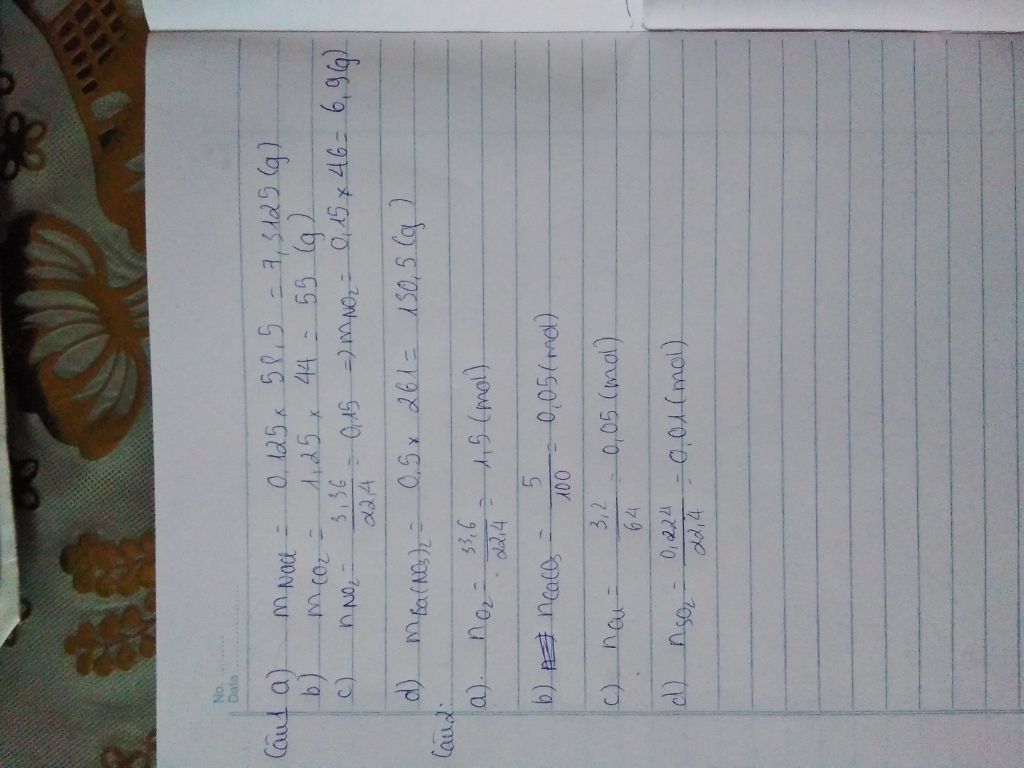 No.
Date
Câu1 a) mNaCl = 0,125 x 58,5 = 7,3125 (g)
b) mCO2 = 1,25 x 44 = 55 (g)
c) nNO2 = 3,36/22,4 = 0,15 => mNO2 = 0,15 x 46 = 6,9(g)
d) mBa(NO3)2 = 0,5 x 261 = 130,5 (g)
Câu2:
a). nO2 = 33,6/22,4 = 1,5 (mol)
b) nCaCO3 = 5/100 = 0,05 (mol)
c) nCu = 3,2/64 = 0,05 (mol)
d) nSO2 = 0,224/22,4 = 0,01 (mol)